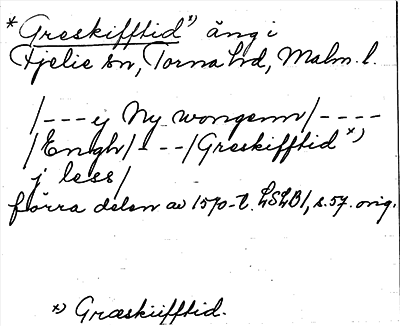 *Greskifftid*) äng i
Fjelie sn, Torna hd, Malm. l.
/---ej Ny wongenn/----
/Engh/---/Greskifftid*)
j less/
förra delen av 1570-t. LSLB1, s. 57. orig.
*) Græskiifftid.